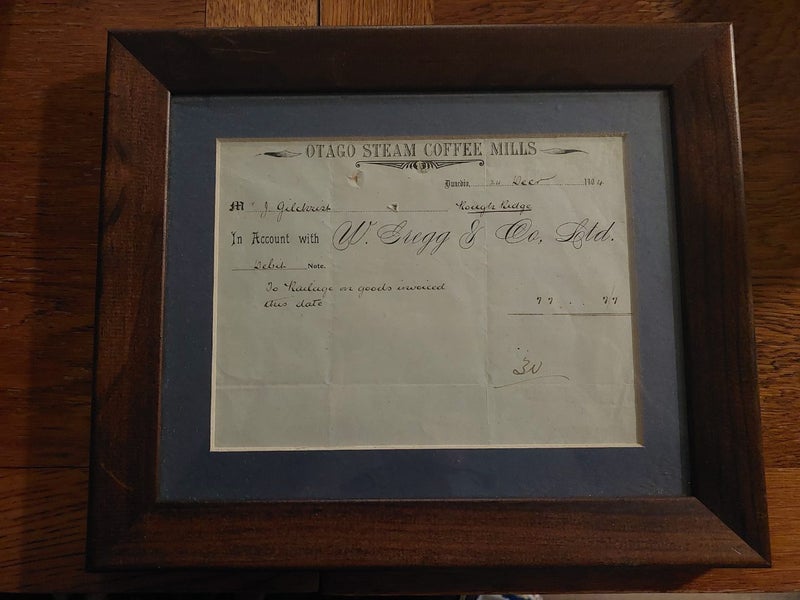 OTAGO STEAM COFFEE MILLS
Dunedin, 20 Decr 1904
Mr J. Gilchrist Rough Ridge
In Account with W. Gregg & Co. Ltd.
Debit Note.
To Railage on goods invoiced
this date